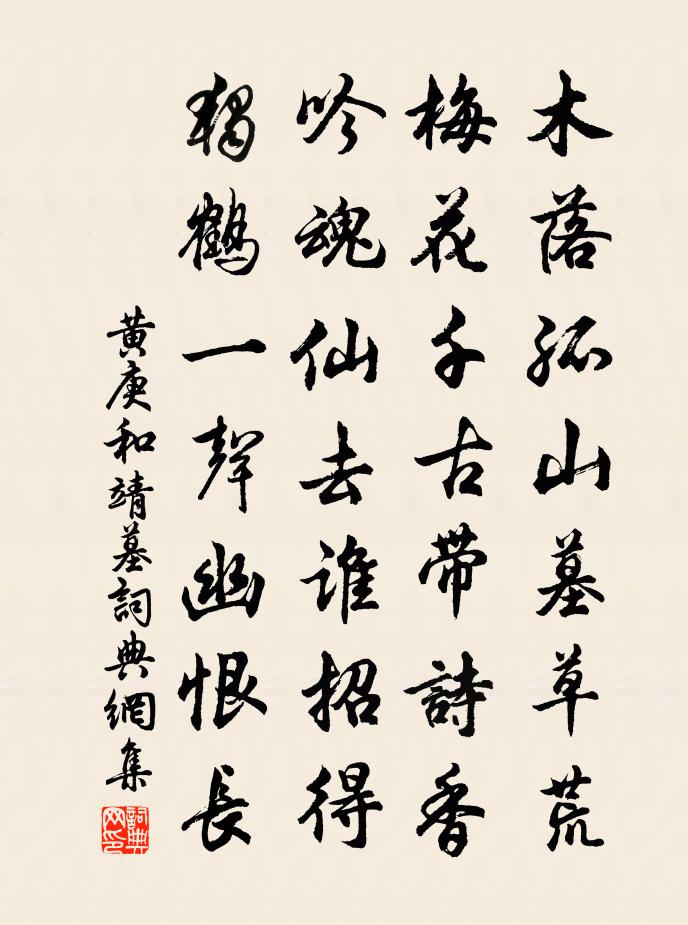 木落孤山墓草荒
梅花千古帶詩香
吟魂仙去誰招得
獨鶴一聲幽恨長
黄庚和靖墓詞典網集
詞典網印